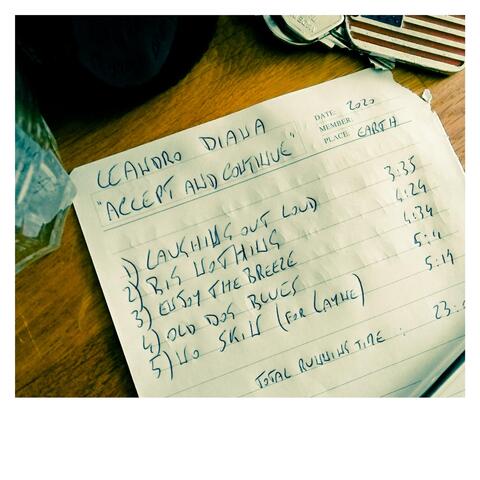 LEANDRO DIANA
"ACCEPT AND CONTINUE"
DATE: 2020
MEMBER:
PLACE: EARTH
1) LAUGHING OUT LOUD 3:35
2) BIG NOTHING 4:24
3) ENJOY THE BREEZE 4:34
4) OLD DOG BLUES
5) NO SKIN (FOR LAYNE) 5:14
TOTAL RUNNING TIME : 23: